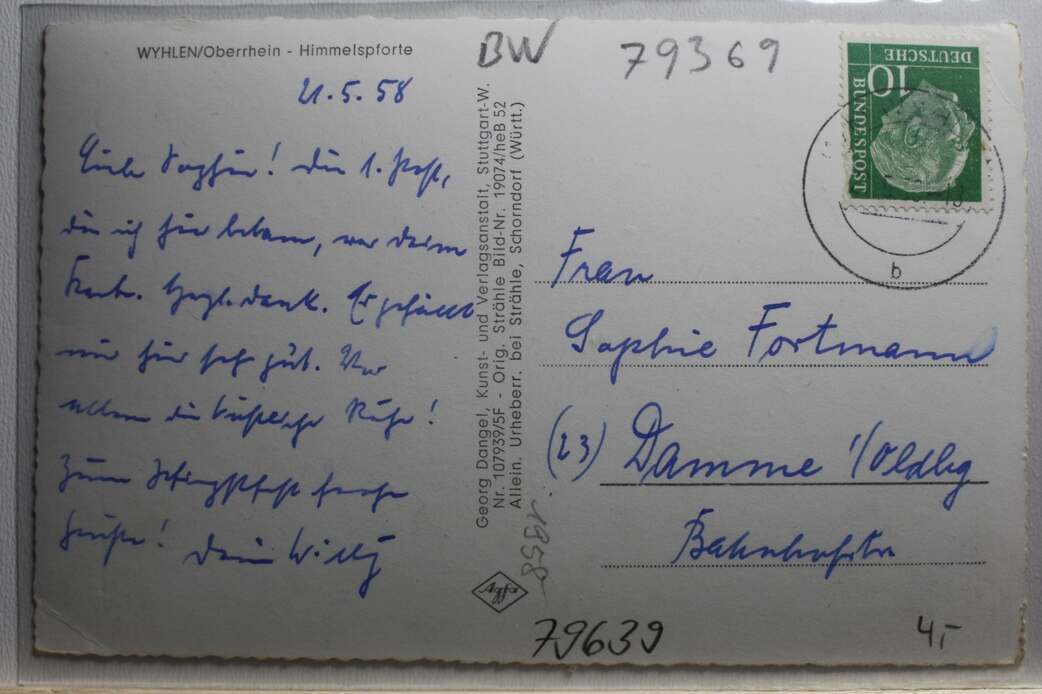 WYHLEN/Oberrhein - Himmelspforte
21.5.58
Liebe Sophie! Die 1. Post,
die ich hier bekam, war deine
Karte. Hrzl. dank. Es gefällt
mir hier sehr gut. Vor
allem die köstliche Ruhe!
Zum Pfingstfest frohe
Grüße! Dein Willy
Georg Dangel, Kunst- und Verlagsanstalt, Stuttgart-W.
Nr. 107939/5F - Orig. Strähle Bild-Nr. 19074/heB 52
Allein. Urheberr. bei Strähle, Schorndorf (Württ.)
1958
Agfa
BW
79369
DEUTSCHE
BUNDESPOST
10
b
Frau
Sophie Fortmann
(23) Damme i/Oldbg
Bahnhofstr
79639
4,-